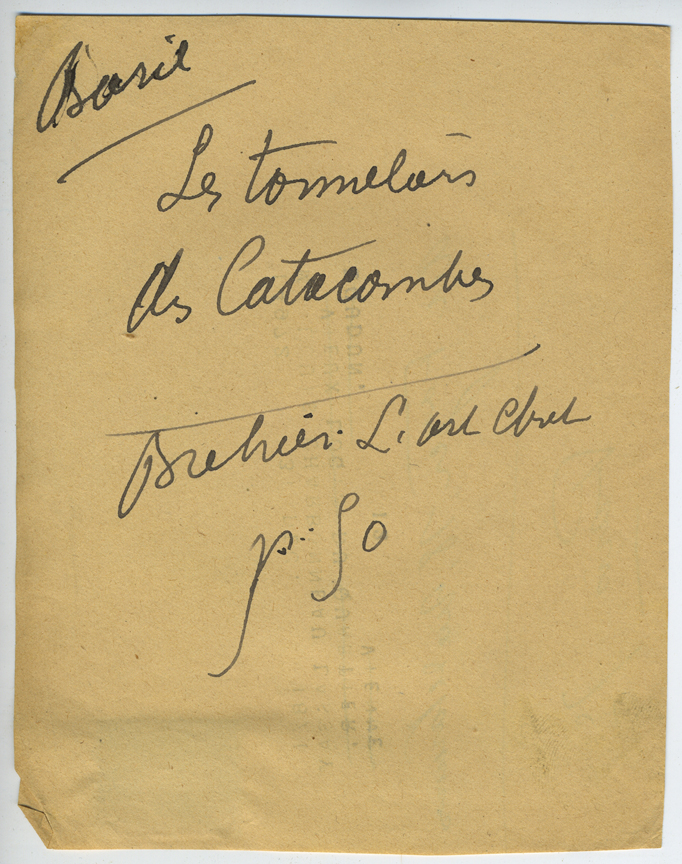 Baril
Les tonneliers
des Catacombes
Brehier. L'art chret
p. 50